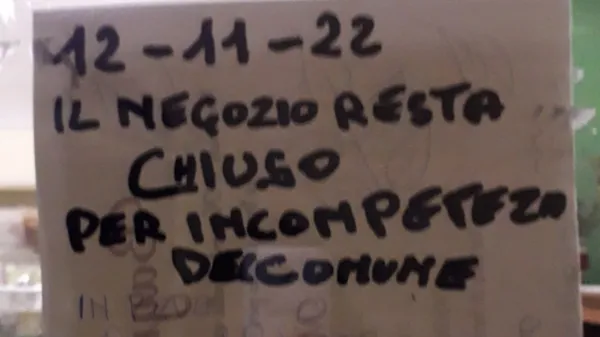 12-11-22
IL NEGOZIO RESTA
CHIUSO
PER INCOMPETEZA
DEL COMUNE
IN